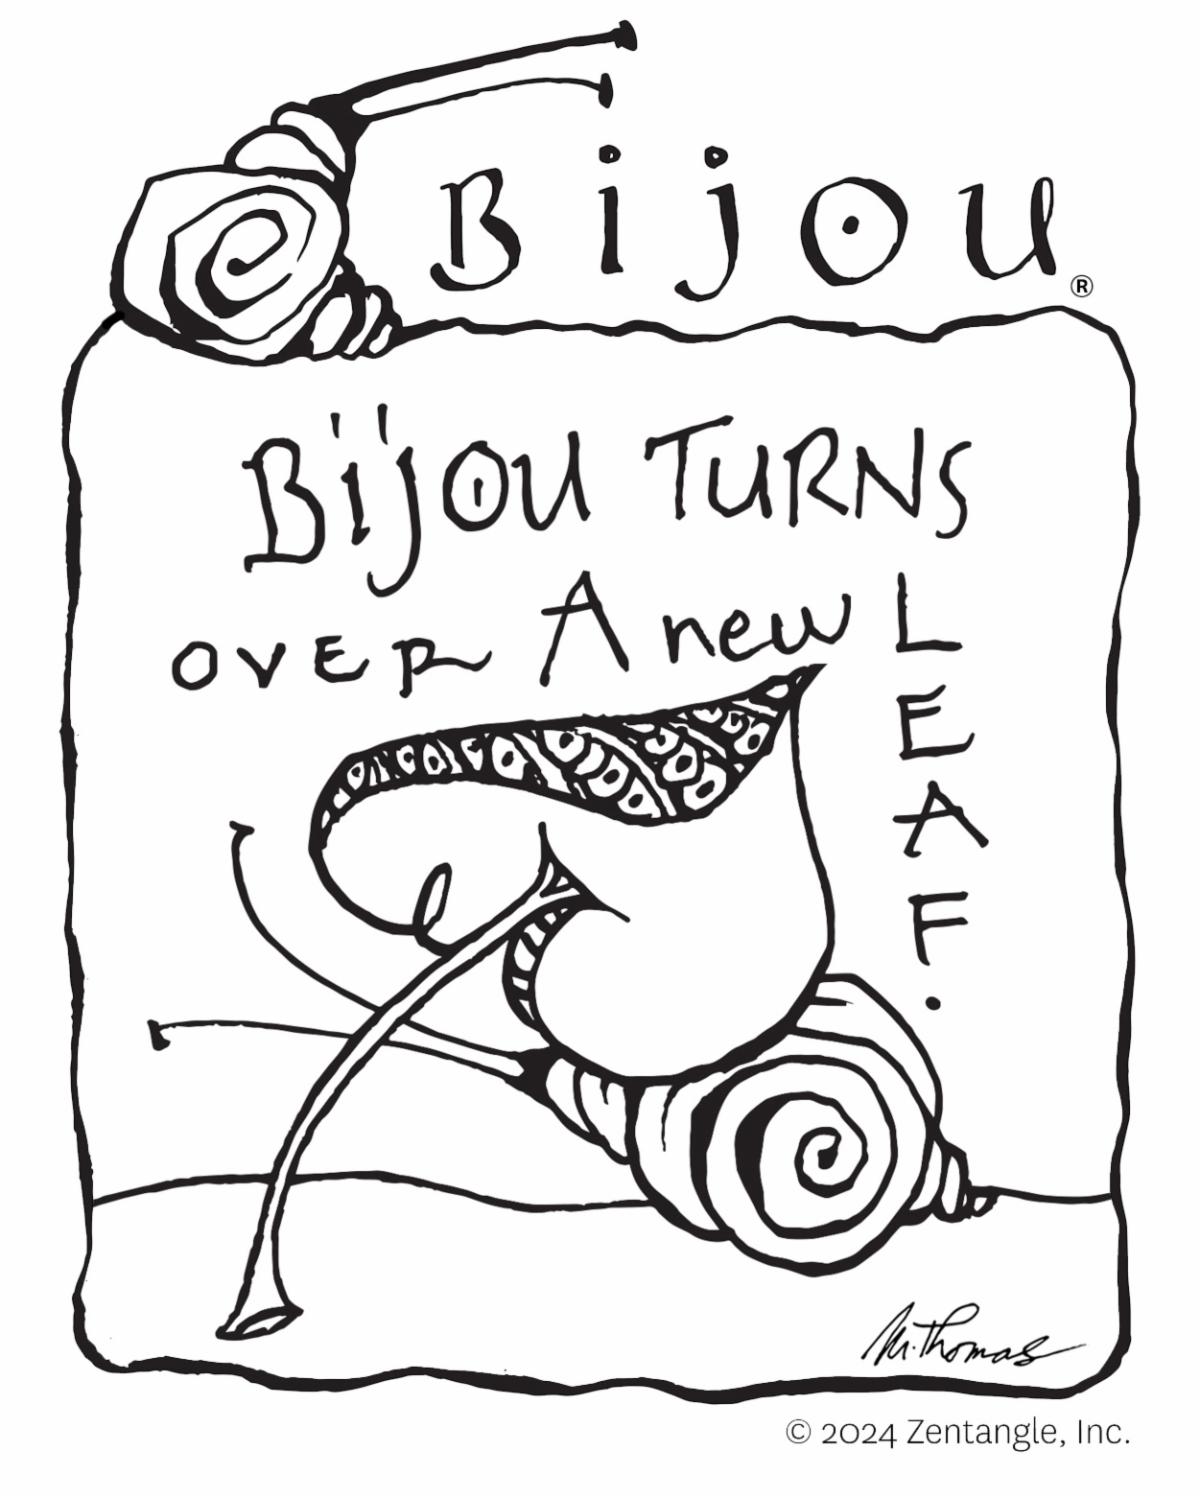 Bijou®
Bijou TURNS
OVER A new
LEAF.
M.Thomas
© 2024 Zentangle, Inc.